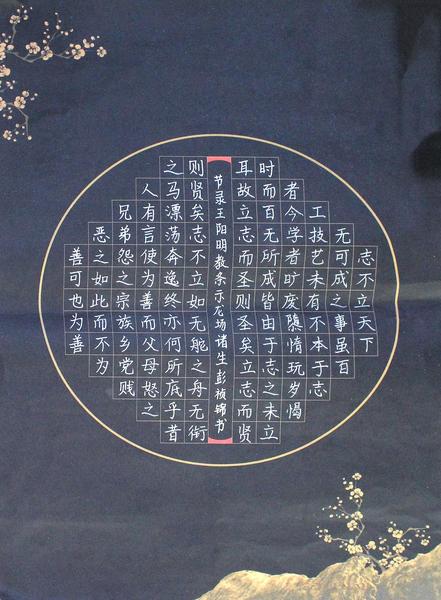 志不立天下
无可成之事虽百
工技艺未有不本于志
者今学者旷废隳惰玩岁愒
时而百无所成皆由于志之未立
耳故立志而圣则圣矣立志而贤
节录王阳明教条示龙场诸生彭祯锦书
则贤矣志不立如无舵之舟无衔
之马漂荡奔逸终亦何所底乎昔
人有言使为善而父母怒之
兄弟怨之宗族乡党贱
恶之如此而不为
善可也为善